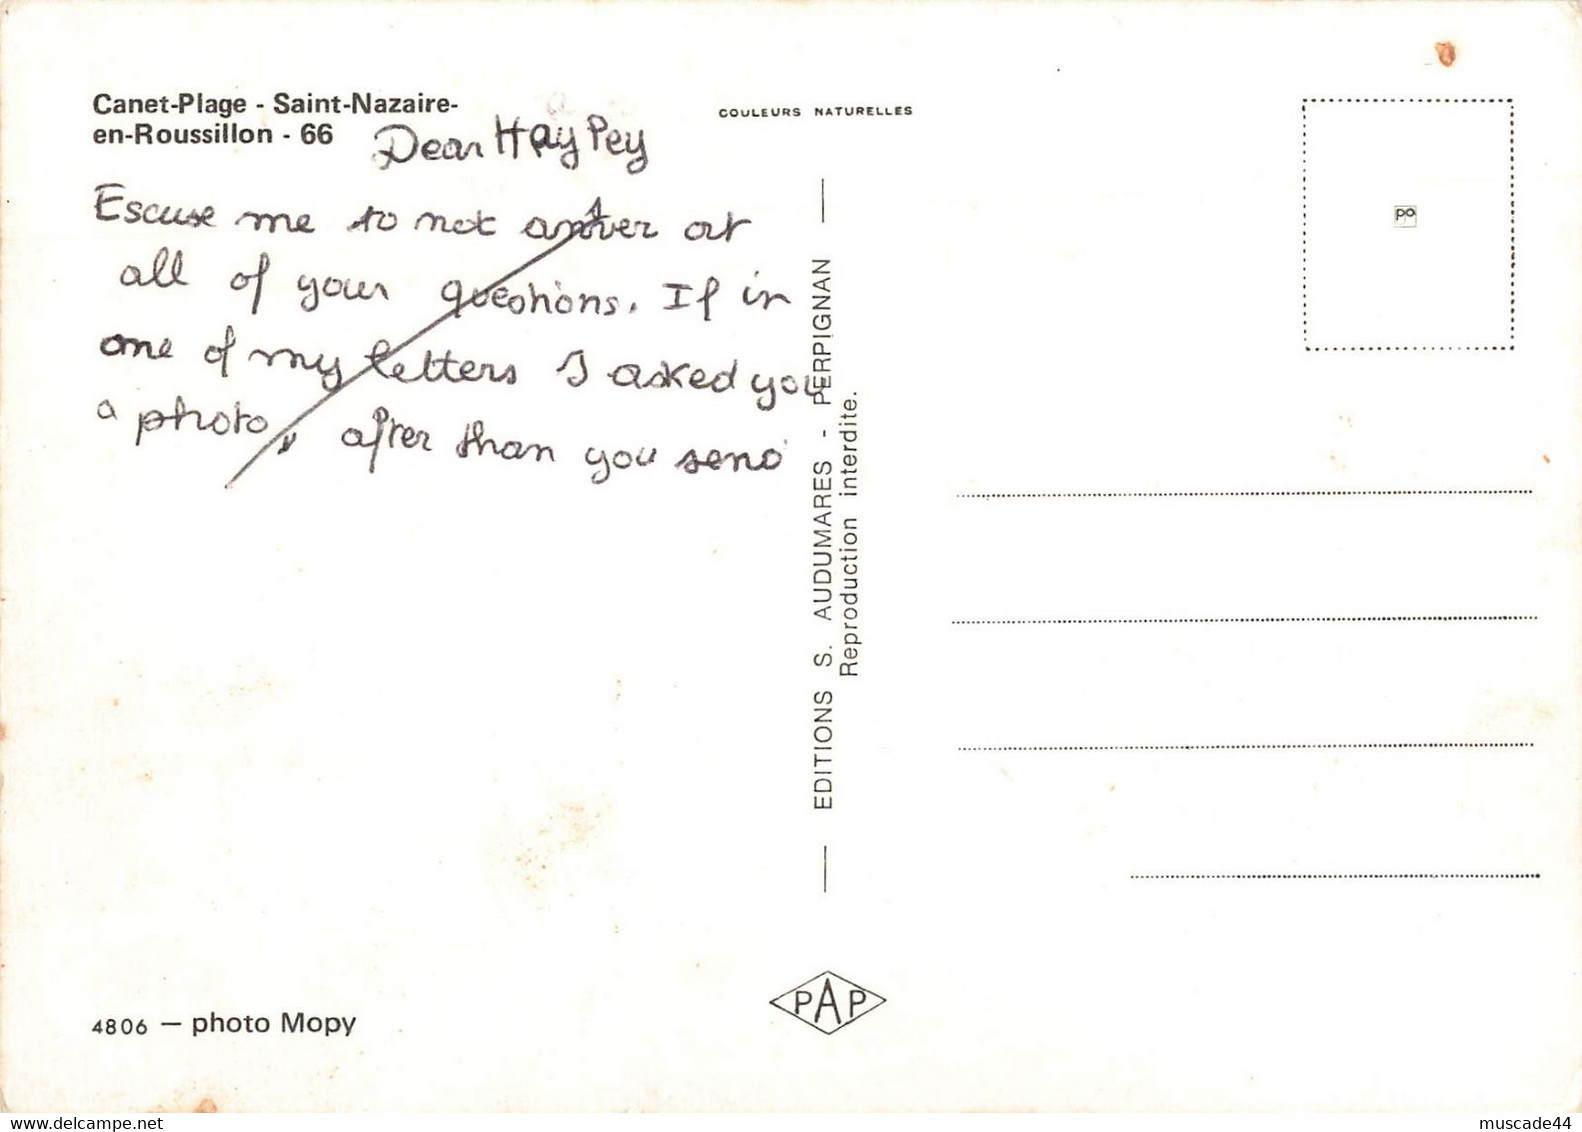 Canet-Plage - Saint-Nazaire-
en-Roussillon - 66
COULEURS NATURELLES
Dear Hay Pey
Escuse me to not answer at
all of your questions. If in
one of my letters I asked you
a photo, after than you send
EDITIONS S. AUDUMARES - PERPIGNAN
Reproduction interdite.
po
4806 — photo Mopy
PAP
delcampe.net
muscade44